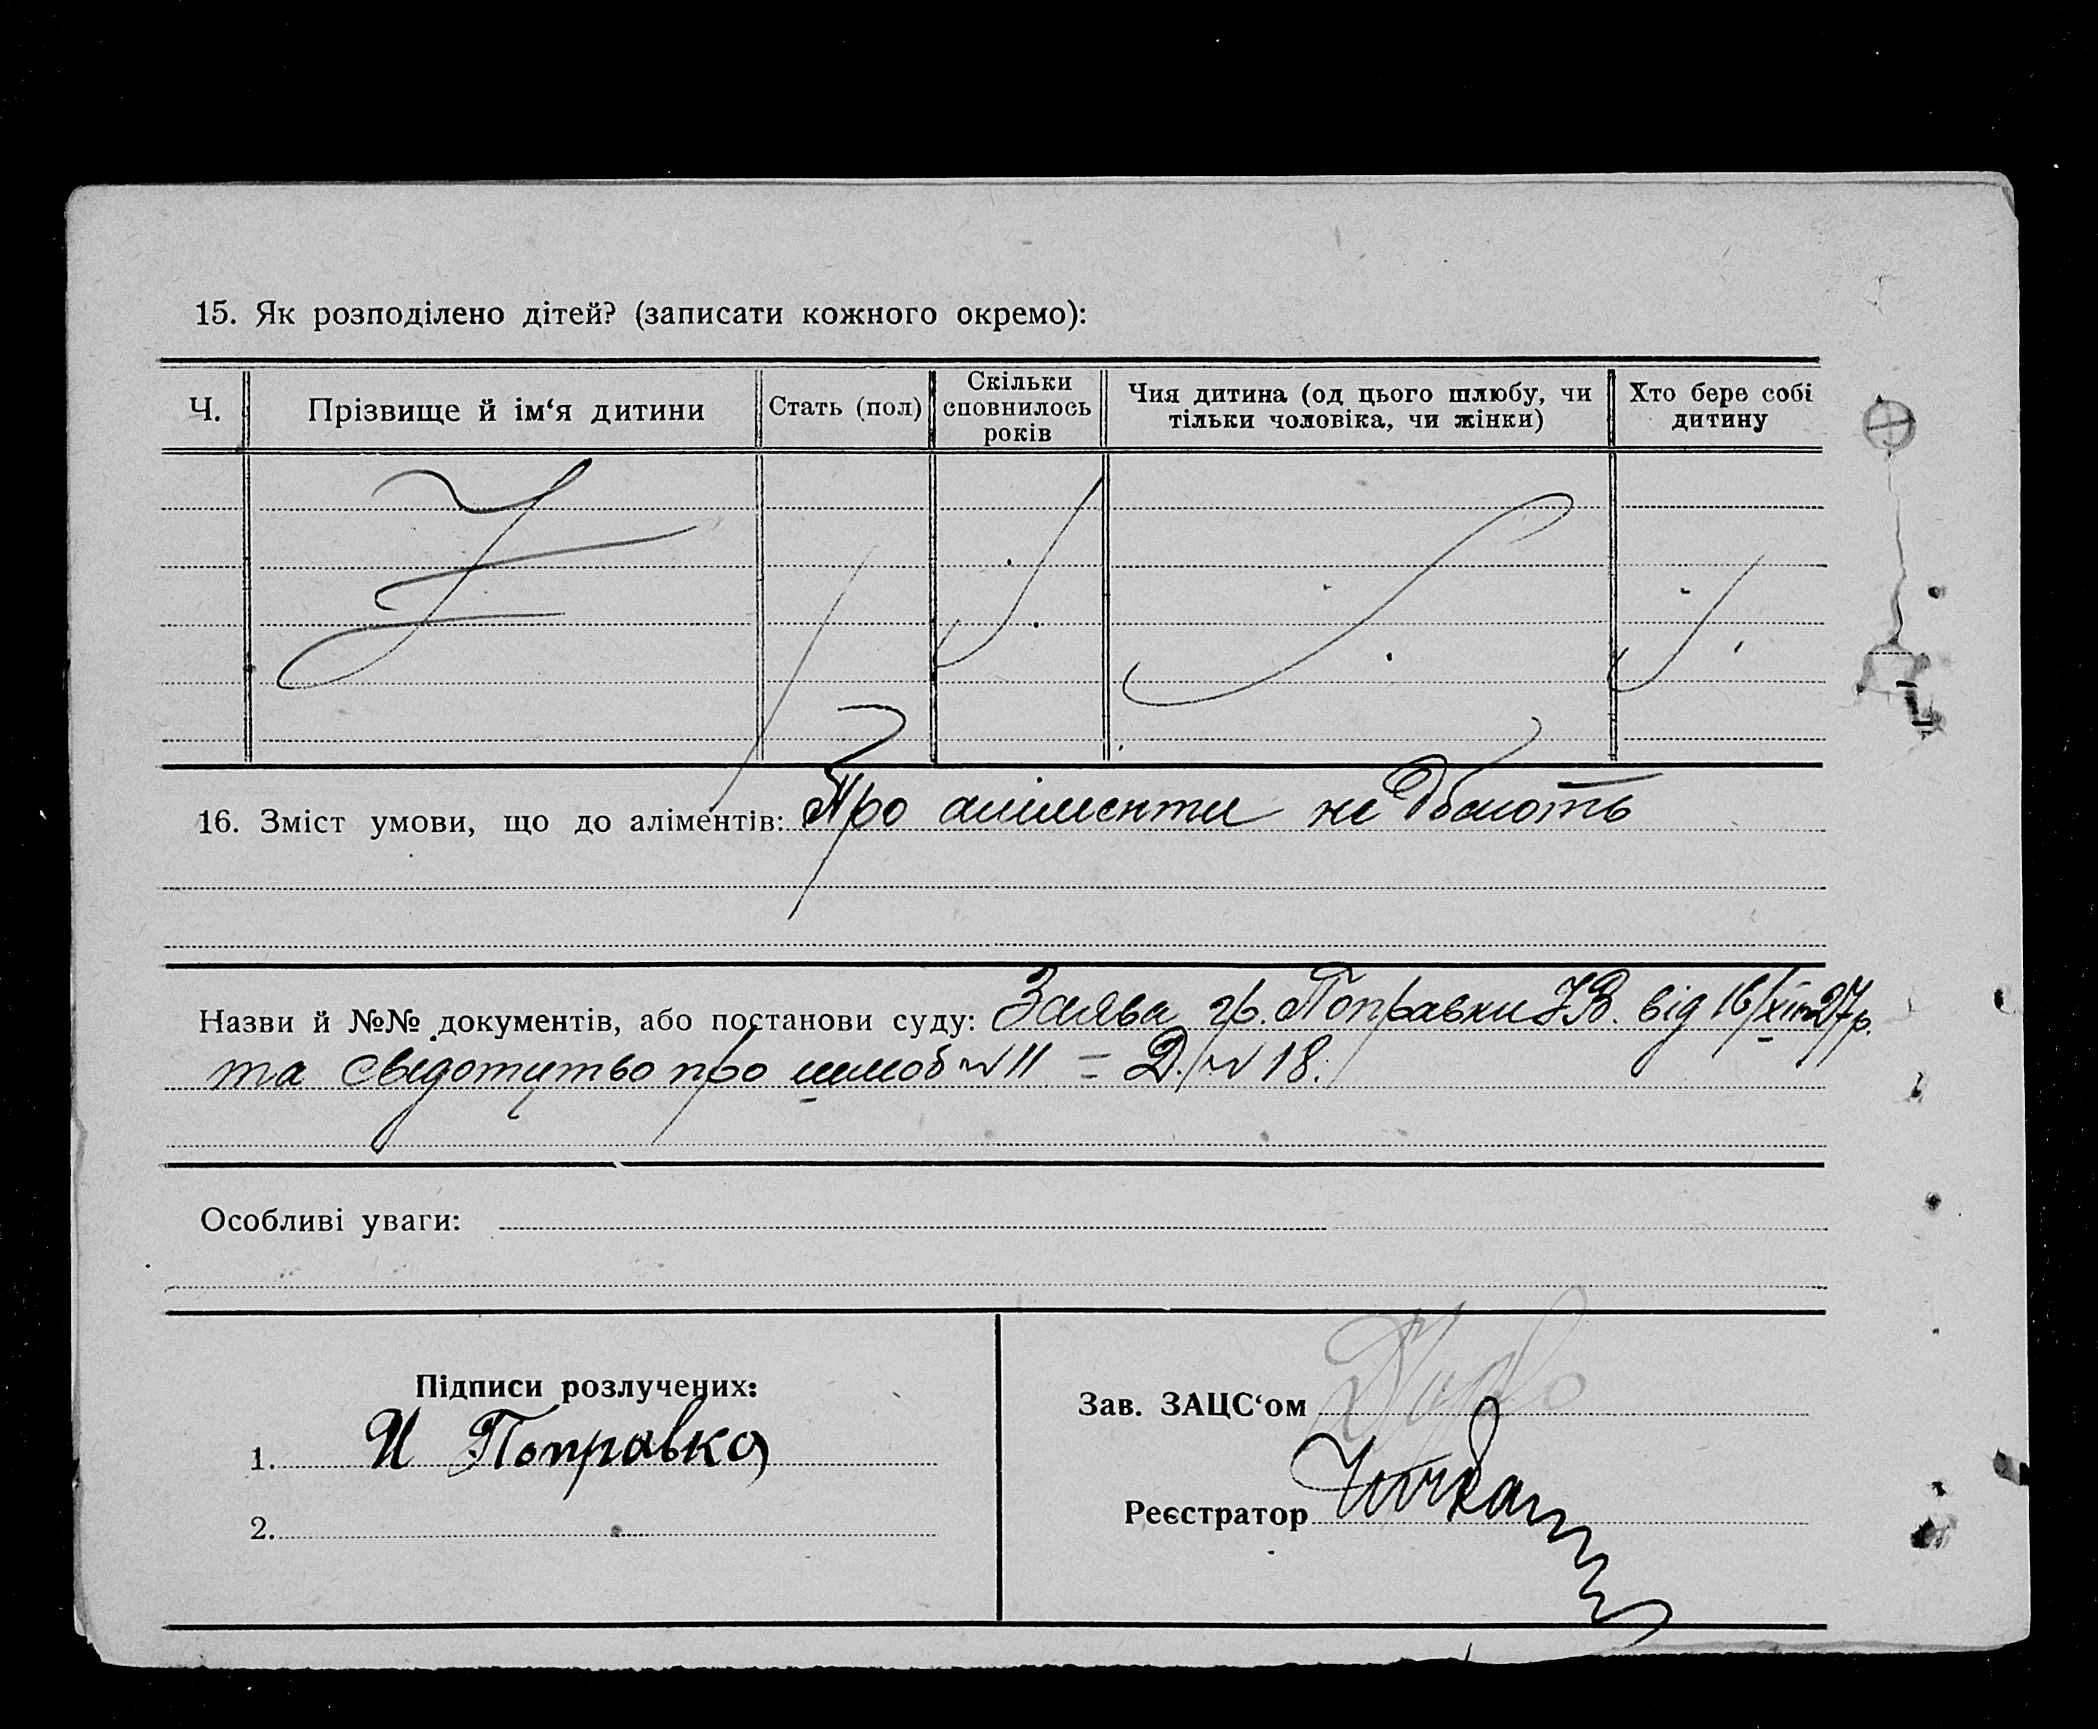 15. Як розподілено дітей? (записати кожного окремо):
Ч.
Прізвище й ім‘я дитини
Стать (пол)
Скільки
сповнилось
років
Чия дитина (од цього шлюбу, чи
тільки чоловіка, чи жінки)
Хто бере собі
дитину
16. Зміст умови, що до аліментів: Про аліменти не дбають
Назви й №№ документів, або постанови суду: Заява гр. Поправки І.В. від 16/XII-27р.
та свідотцтво про шлюб № 11 = Д. № 18.
Особливі уваги:
Підписи розлучених:
1. И Поправка
2.
Зав. ЗАЦС‘ом
Реєстратор